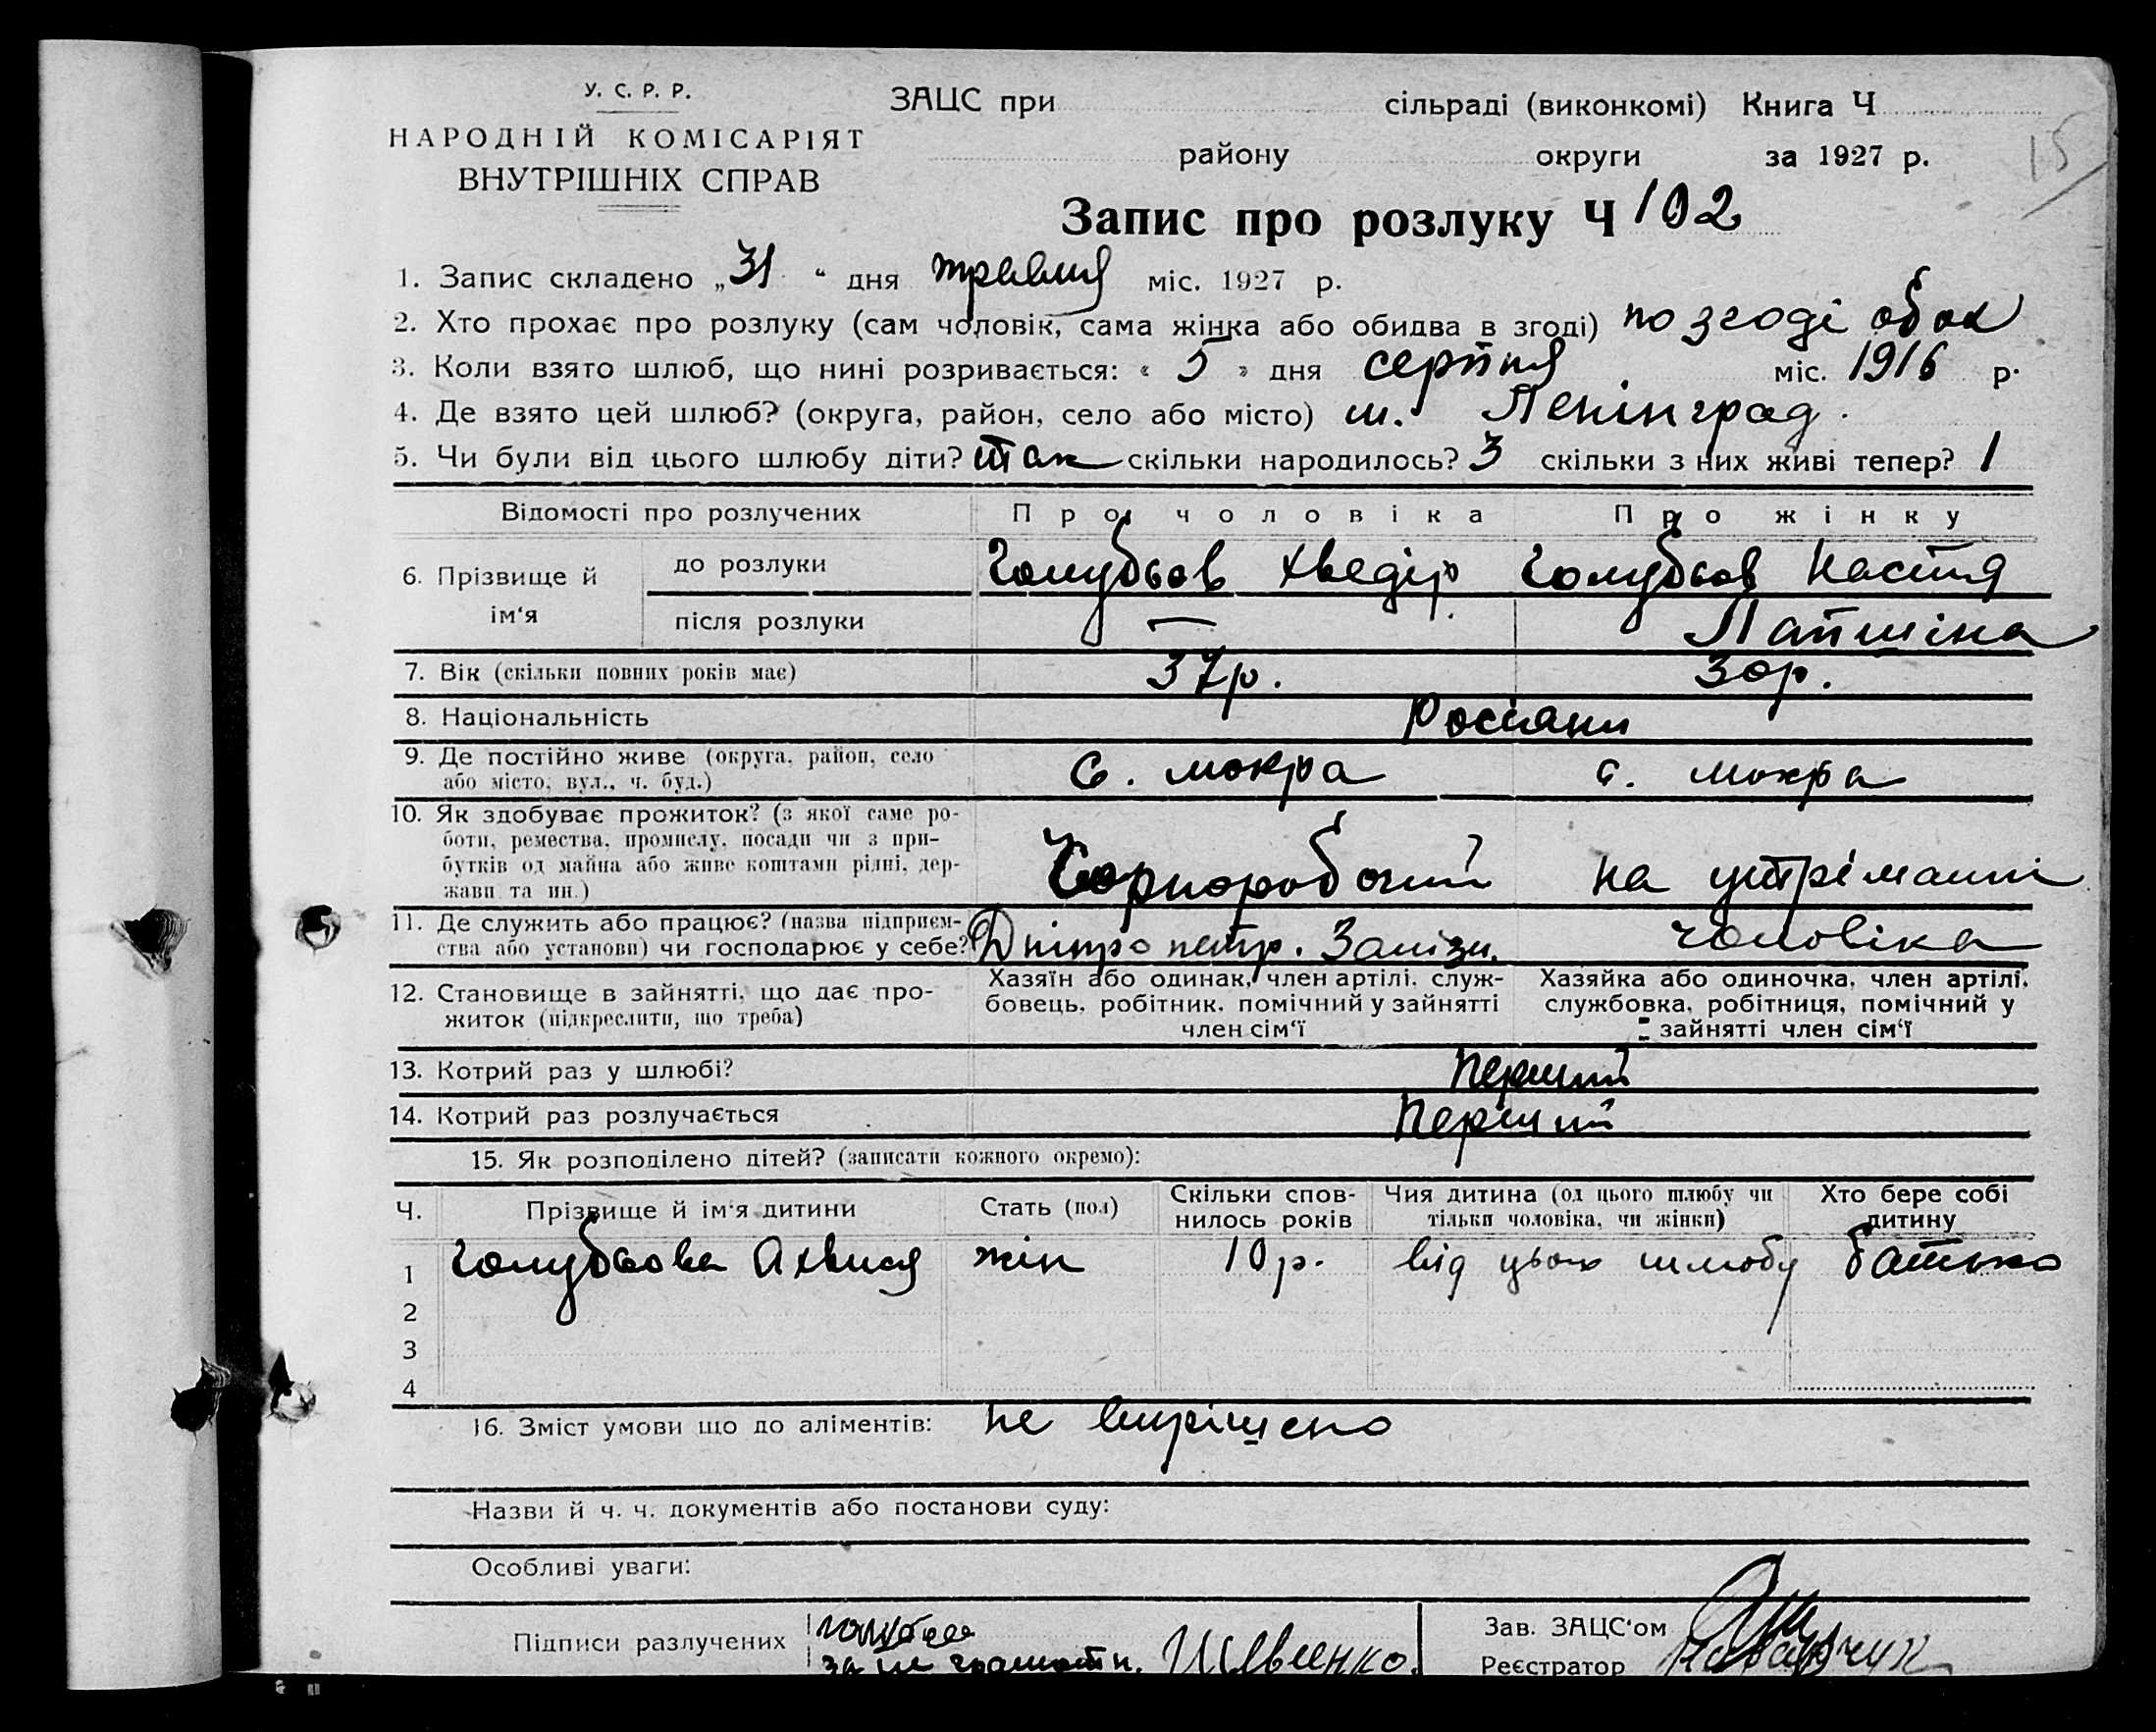 У. С. Р. Р.
НАРОДНІЙ КОМІСАРІЯТ
ВНУТРІШНІХ СПРАВ
ЗАЦС при сільраді (виконкомі) Книга Ч
району округи за 1927 р.
15
Запис про розлуку Ч 102
1. Запис складено „31“ дня травня міс. 1927 р.
2. Хто прохає про розлуку (сам чоловік, сама жінка або обидва в згоді) по згоді обох
3. Коли взято шлюб, що нині розривається: « 5 » дня серпня міс. 1916 р.
4. Де взято цей шлюб? (округа, район, село або місто) м. Ленінград.
5. Чи були від цього шлюбу діти? так скільки народилось? 3 скільки з них живі тепер? 1
Відомості про розлучених Про чоловіка Про жінку
6. Прізвище й ім‘я
до розлуки Голубьов Хведір Голубьов Настя
після розлуки — Лапшіна
7. Вік (скільки повних років має) 37р. 30р.
8. Національність Росіяни
9. Де постійно живе (округа, район, село
або місто, вул., ч. буд.) с. мокра с. мокра
10. Як здобуває прожиток? (з якої саме ро-
боти, ремества, промислу, посади чи з при-
бутків од майна або живе коштами рідні, дер-
жави та ин.) Чорноробочий на утріманні
11. Де служить або працює? (назва підприєм-
ства або установи) чи господарює у себе? Дніпропетр. Залізн. чоловіка
12. Становище в зайнятті, що дає про-
житок (підкреслити, що треба)
Хазяїн або одинак, член артілі, служ-
бовець, робітник, помічний у зайнятті
член сім‘ї
Хазяйка або одиночка, член артілі,
службовка, робітниця, помічний у
зайнятті член сім‘ї
13. Котрий раз у шлюбі? перший
14. Котрий раз розлучається перший
15. Як розподілено дітей? (записати кожного окремо):
Ч. Прізвище й ім‘я дитини Стать (пол) Скільки спов-
нилось років Чия дитина (од цього шлюбу чи
тільки чоловіка, чи жінки) Хто бере собі
дитину
1 Голубьова жін 10р. від цього шлюбу батько
2
3
4
16. Зміст умови що до аліментів: не вирішено
Назви й ч. ч. документів або постанови суду:
Особливі уваги:
Підписи разлучених
за не грамотн.
Зав. ЗАЦС‘ом
Реєстратор